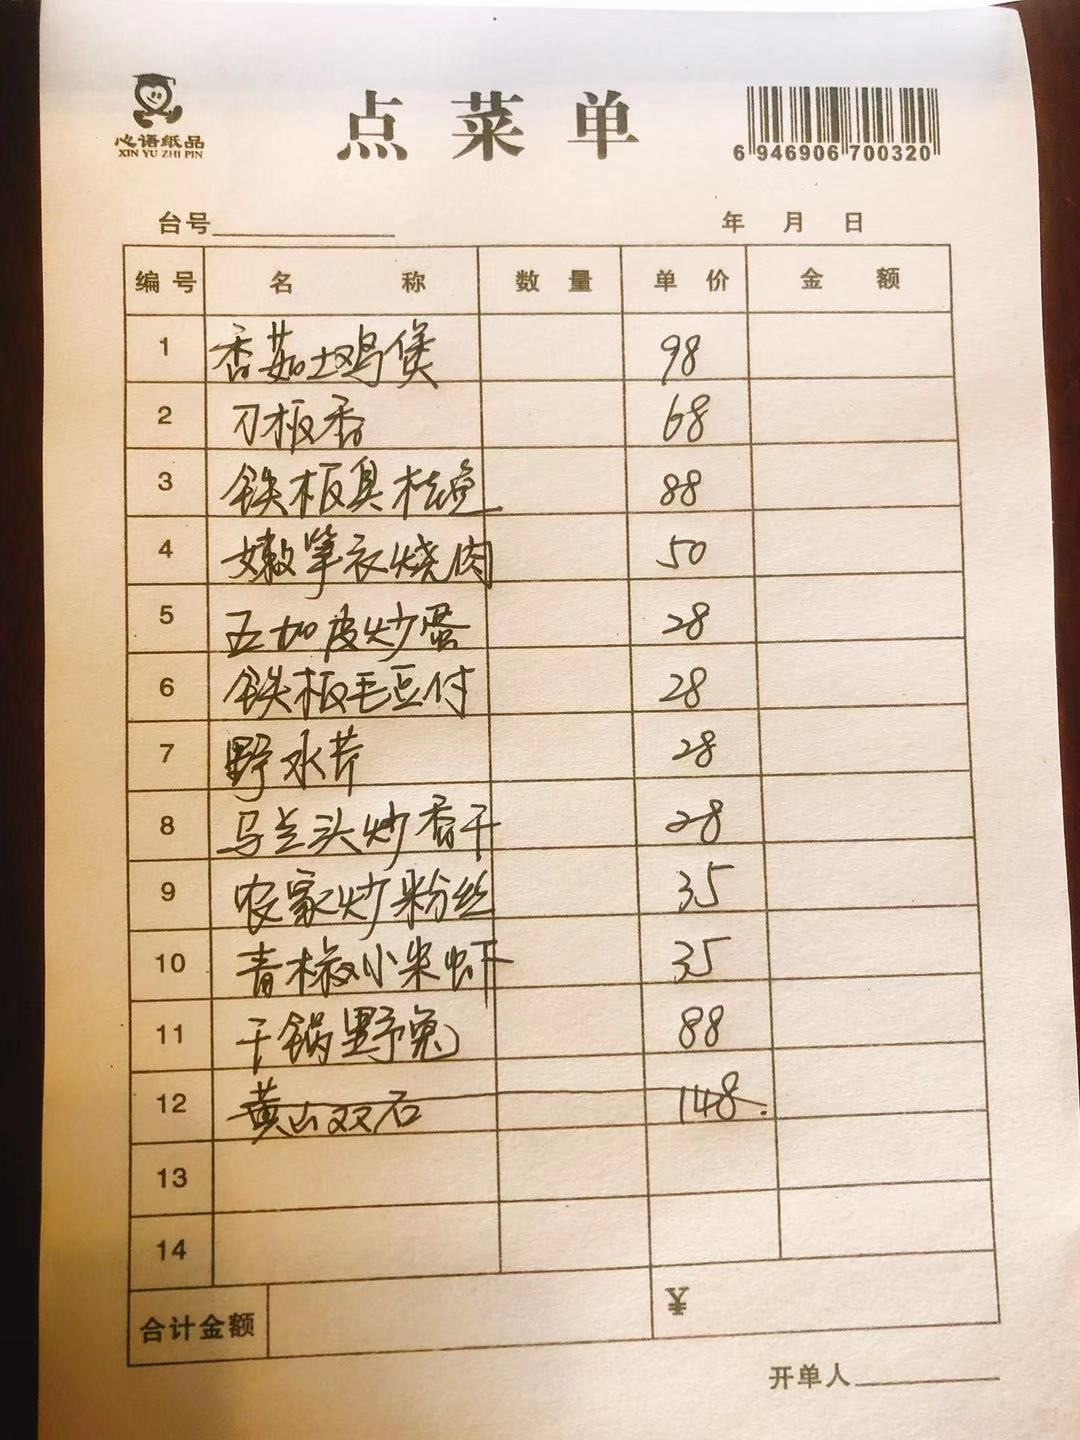 心语纸品
XIN YU ZHI PIN
点菜单
6 946906 700320
台号
年 月 日
编号 名称 数量 单价 金额
1 香茹土鸡煲 98
2 刀板香 68
3 铁板臭桂鱼 88
4 嫩笋衣烧肉 50
5 五加皮炒蛋 28
6 铁板毛豆付 28
7 野水芹 28
8 马兰头炒香干 28
9 农家炒粉丝 35
10 青椒小米虾 35
11 干锅野兔 88
12 黄山双石 148.
13
14
合计金额 ¥
开单人